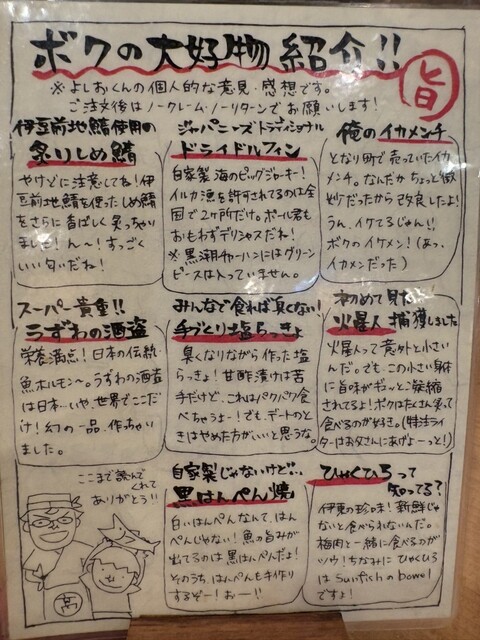 ボクの大好物紹介!!
旨
※よしおくんの個人的な意見・感想です。
ご注文後はノークレーム・ノーリターンでお願いします!
伊豆前地鯖使用の
炙りしめ鯖
やけどに注意してね!伊
豆前地鯖を使ったしめ鯖
をさらに香ばしく炙っちゃい
ました!ん〜!すっごく
いい匂いだね!
ジャパニーズトラディショナル
ドライドルフィン
自家製海のビッグジャーキー!
イルカ漁を許されてるのは全
国で2ヶ所だけ。ポール君も
おもわずデリシャスだね!
※黒潮チャーハンにはグリーン
ピースは入っていません。
俺のイカメンチ
となり町で売っていたイカ
メンチ。なんだかちょっと微
妙だったから改良したよ!
うん、イケてるじゃん!!
ボクのイケメン!(あっ、
イカメンだった)
スーパー貴重!!
うずわの酒盗
栄養満点!日本の伝統
魚ホルモン〜。うずわの酒盗
は日本…いや、世界でここだ
け!幻の一品、作っちゃい
ました。
みんなで食れば臭くない!
手づくり塩らっきょ
臭くなりながら作った塩
らっきょ!甘酢漬けは苦
手だけど、これはパクパク食
べちゃうよー!でも、デートのと
きはやめた方がいいと思うな。
初めて見た!
火星人捕獲しました
火星人って意外と小さい
んだ。でも、この小さい身体
に旨味がギュッと凝縮
されてるよ!ボクはたくさん笑って
食べるのが好き。(特注ライ
ターはお父さんにあげよーっと!)
ここまで読んで
くれて
ありがとう!!
高
自家製じゃないけど…
黒はんぺん焼
白いはんぺんなんて、はん
ぺんじゃない!魚の旨みが
出てるのは黒はんぺんだよ!
そのうち、はんぺんも手作り
するぞー!おー!!
ひゃくひろって
知ってる?
伊東の珍味!新鮮じゃ
ないと食べられないんだ。
梅肉と一緒に食べるのが
ツウ!ちなみにひゃくひろ
はsunfishのbowel
ですよ!